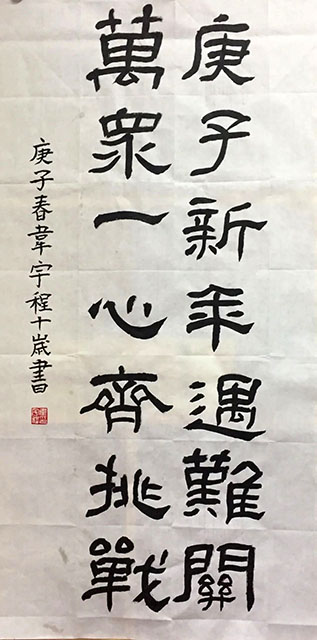 庚子新年遇難關
萬眾一心齊挑戰
庚子春韋宇程十歲書